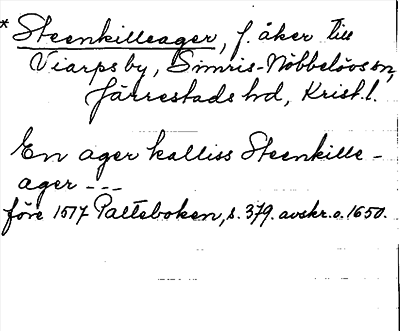 * Steenkilleager, f. åker till
Viarps by, Simris-Nöbbelövs sn,
Järrestads hd, Krist. l.
En ager kalliss Steenkille-
ager ---
före 1517 Palteboken, s. 379. avskr. o. 1650.